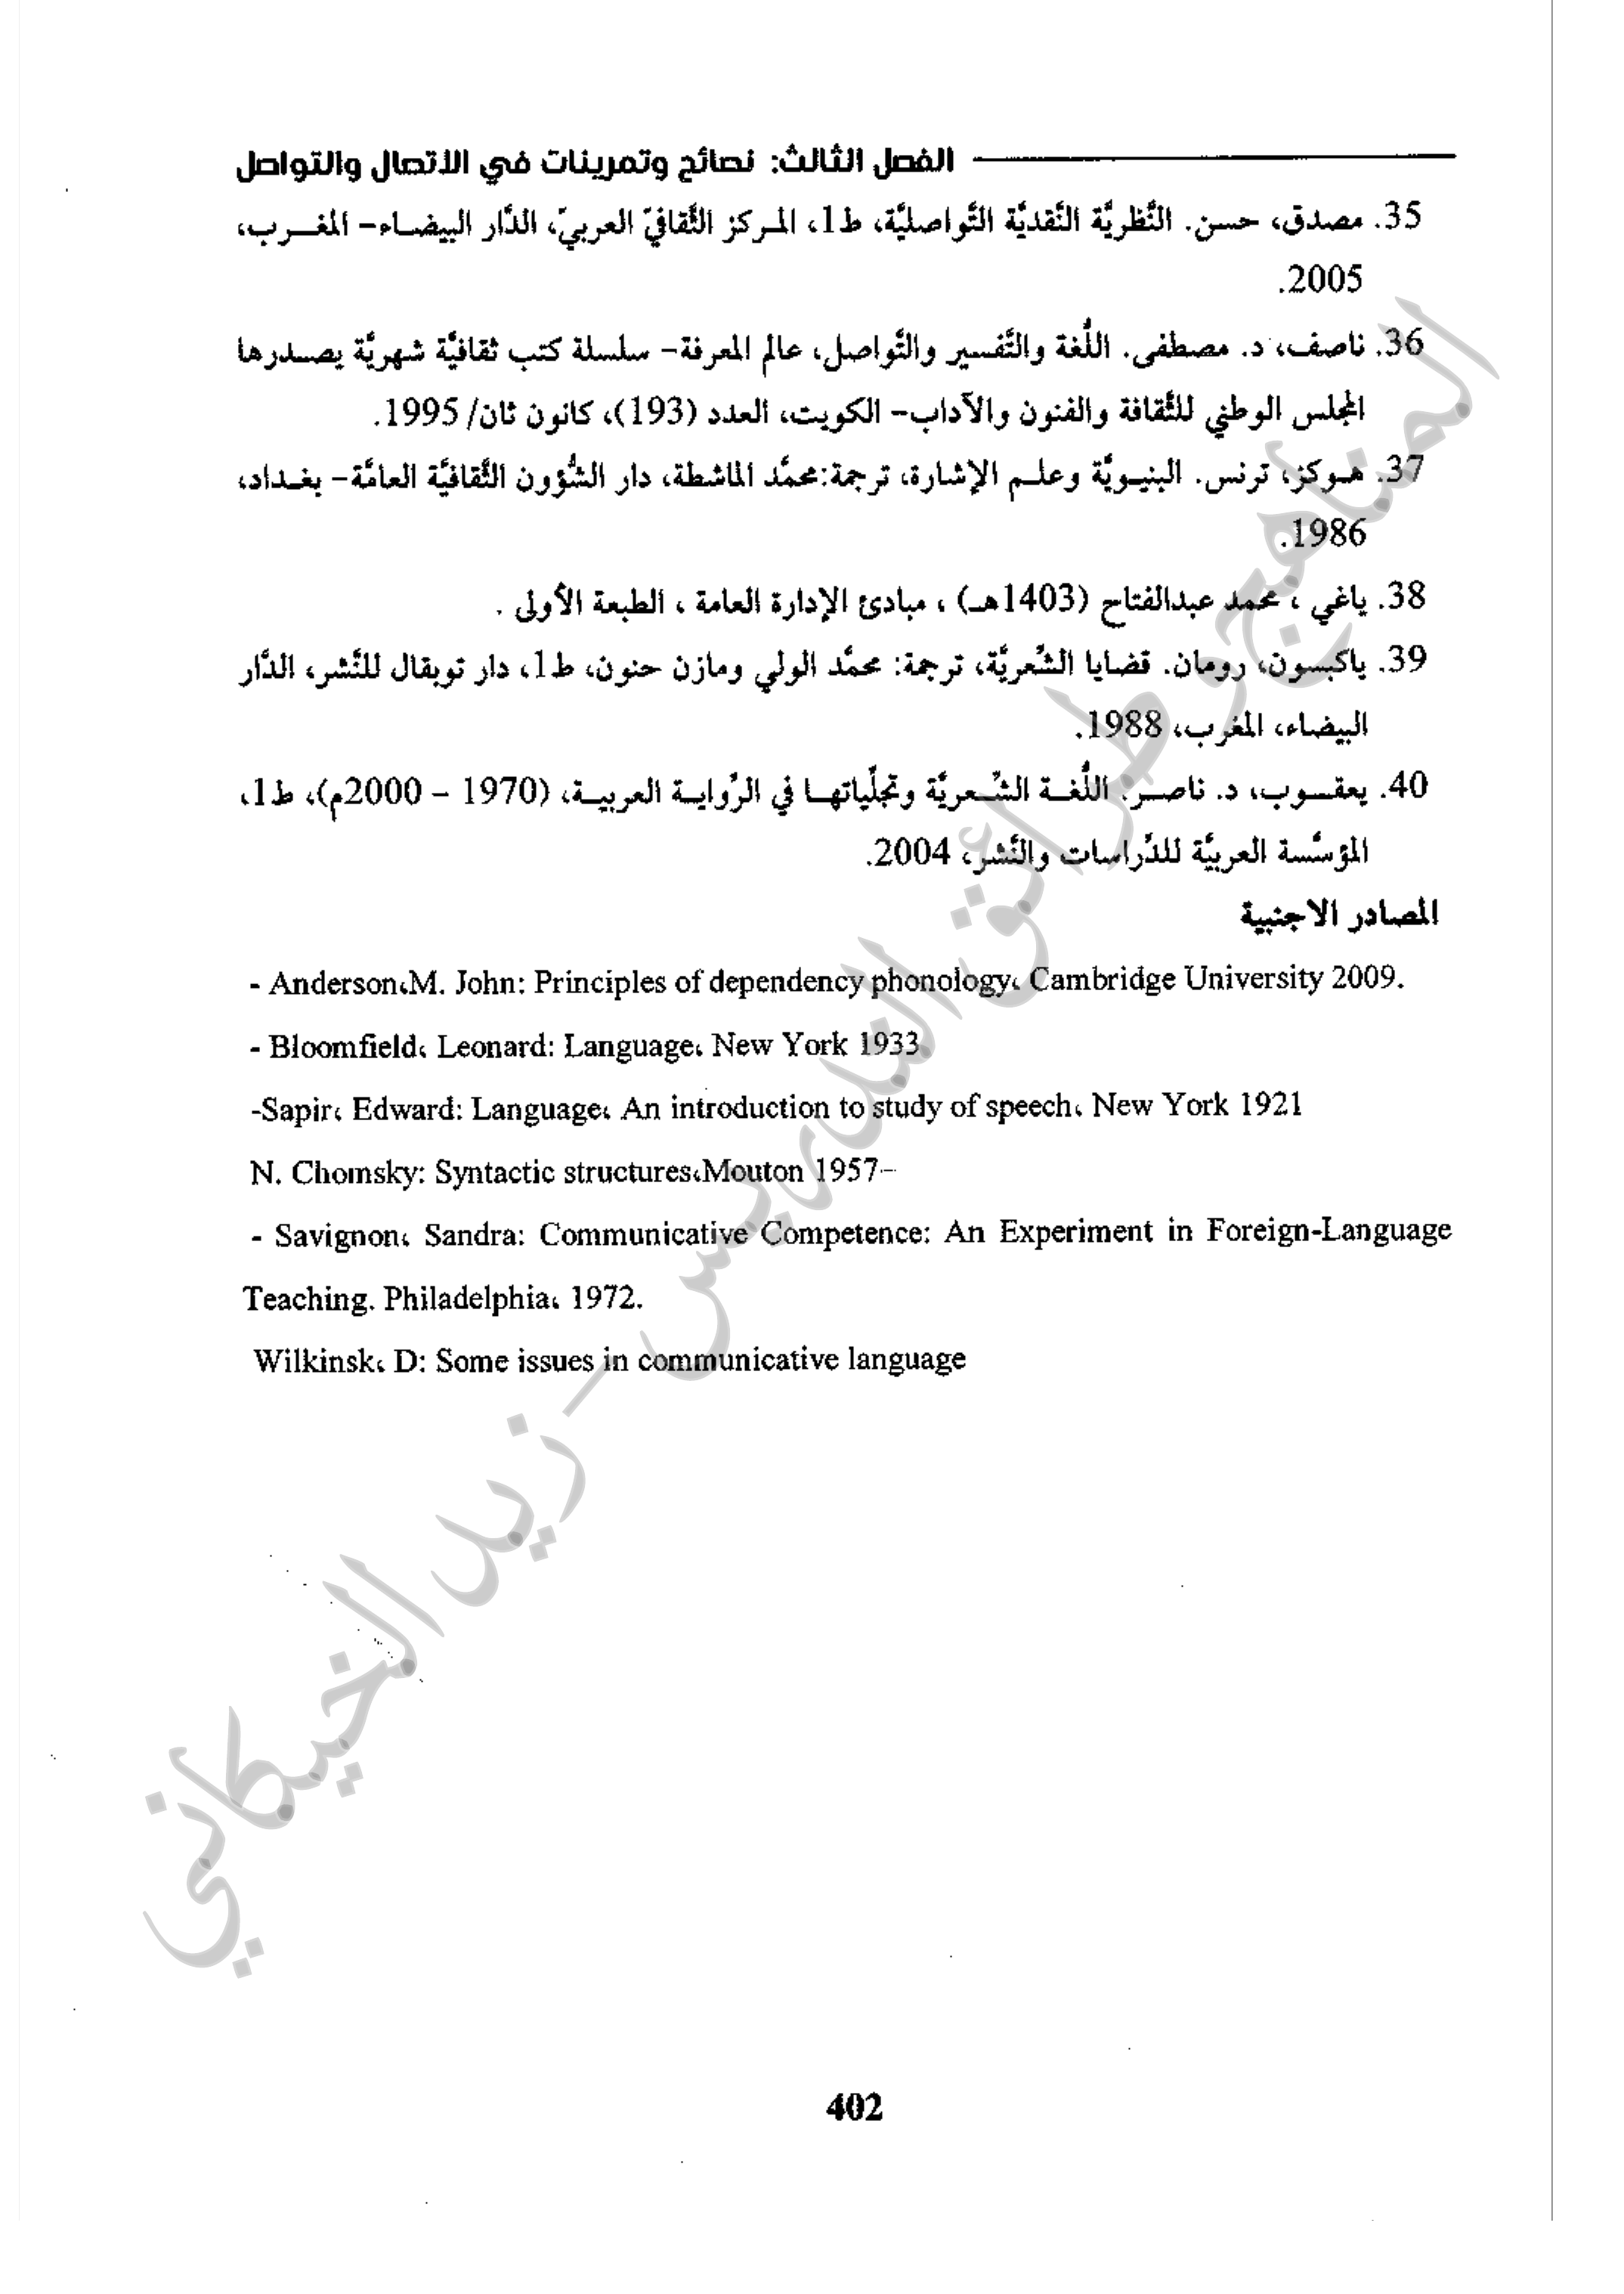 الفصل الثالث: نصائح وتمرينات في الاتصال والتواصل
35. مصدق، حسن. النَّظريَّة النَّقديَّة التَّواصليَّة، ط1، المركز الثَّقافيّ العربيّ، الدَّار البيضاء- المغرب،
2005.
36. ناصف، د. مصطفى. اللُّغة والتَّفسير والتَّواصل، عالم المعرفة- سلسلة كتب ثقافيَّة شهريَّة يصدرها
المجلس الوطني للثَّقافة والفنون والآداب- الكويت، العدد (193)، كانون ثان/ 1995.
37. هوكز، ترنس. البنيويَّة وعلم الإشارة، ترجمة:محمَّد الماشطة، دار الشُّؤون الثَّقافيَّة العامَّة- بغداد،
1986.
38. ياغي ، محمد عبدالفتاح (1403هـ) ، مبادئ الإدارة العامة ، الطبعة الأولى .
39. ياكبسون، رومان. قضايا الشِّعريَّة، ترجمة: محمَّد الولي ومازن حنون، ط1، دار توبقال للنَّشر، الدَّار
البيضاء، المغرب، 1988.
40. يعقوب، د. ناصر. اللُّغة الشِّعريَّة وتجلِّياتها في الرِّواية العربية، (1970 – 2000م)، ط1،
المؤسَّسة العربيَّة للدِّراسات والنَّشر، 2004.
المصادر الاجنبية
- Anderson،M. John: Principles of dependency phonology، Cambridge University 2009.
- Bloomfield، Leonard: Language، New York 1933
-Sapir، Edward: Language، An introduction to study of speech، New York 1921
N. Chomsky: Syntactic structures،Mouton 1957–
- Savignon، Sandra: Communicative Competence: An Experiment in Foreign-Language
Teaching. Philadelphia، 1972.
Wilkinsk، D: Some issues in communicative language
المناهج وطرائق التدريس - زيد الخيكاني
402